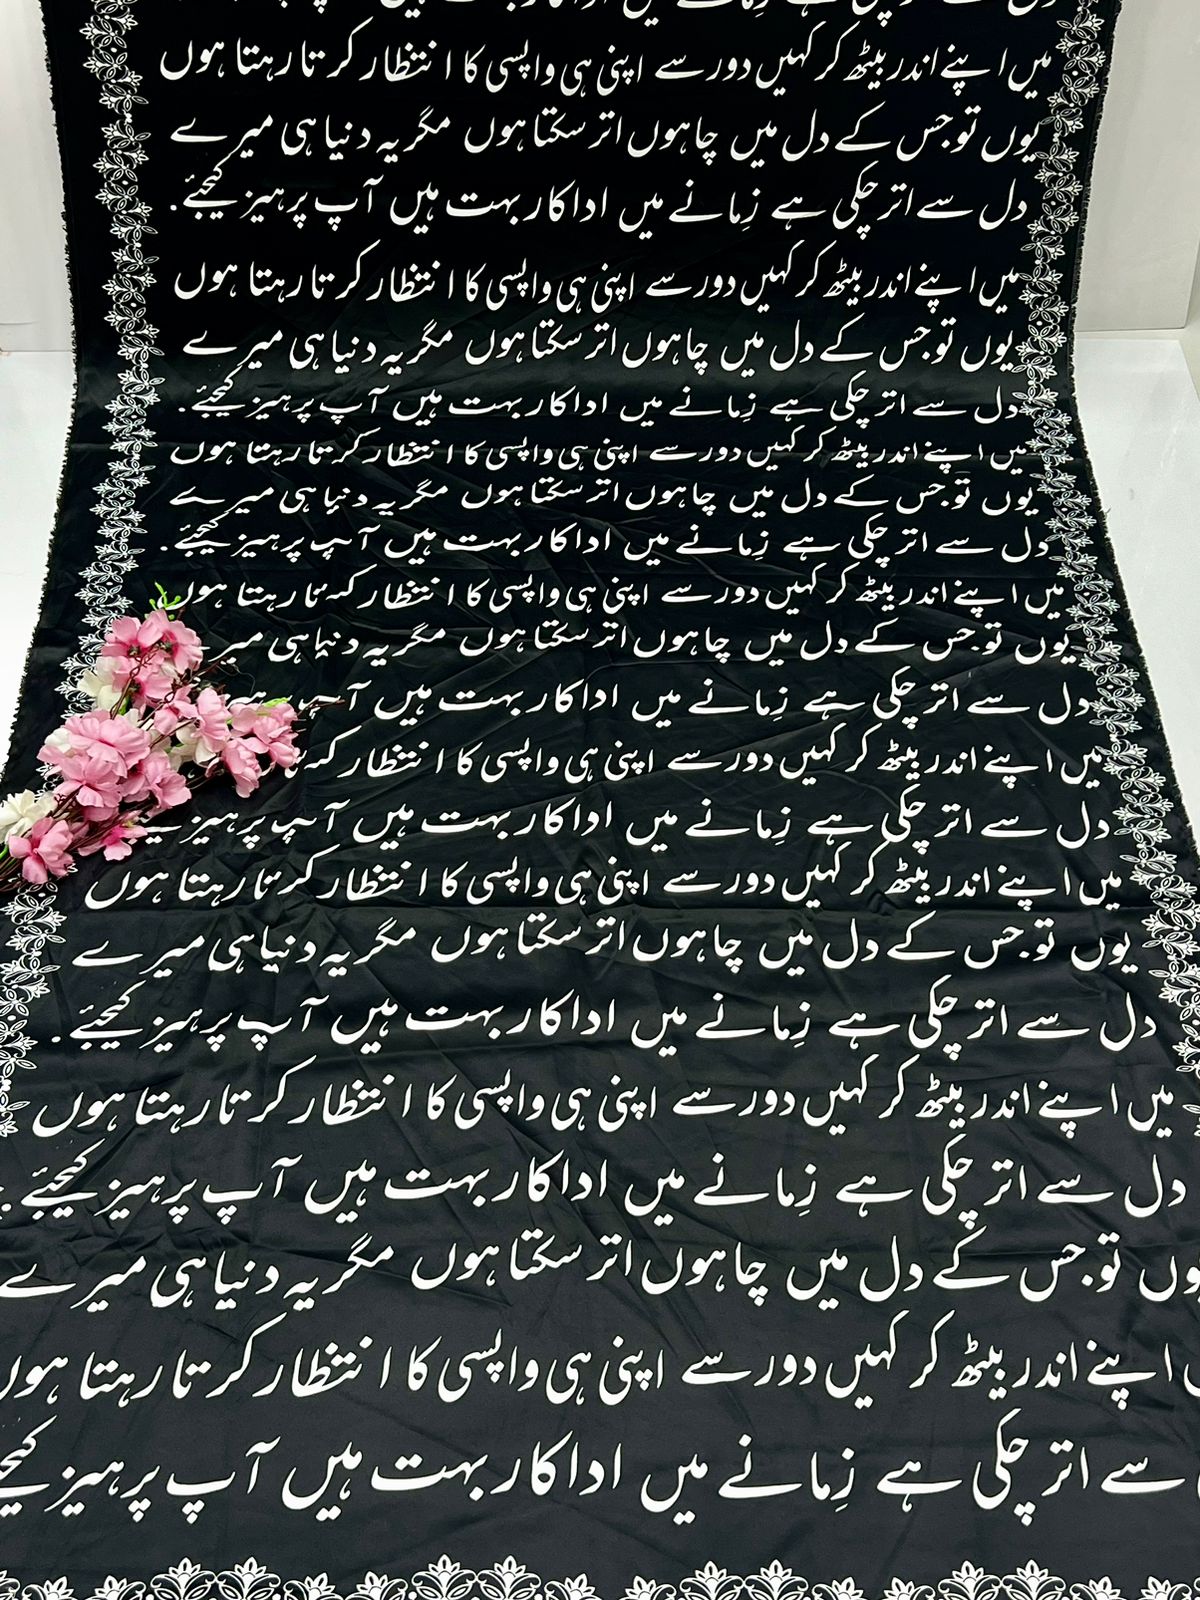 دل سے اتر چکی ہے زمانے میں اداکار بہت ہیں
میں اپنے اندر بیٹھ کر کہیں دور سے اپنی ہی واپسی کا انتظار کرتا رہتا ہوں
یوں تو جس کے دل میں چاہوں اتر سکتا ہوں مگر یہ دنیا ہی میرے
دل سے اتر چکی ہے زِمانے میں اداکار بہت ہیں آپ پرہیز کیجئے.
میں اپنے اندر بیٹھ کر کہیں دور سے اپنی ہی واپسی کا انتظار کرتا رہتا ہوں
یوں تو جس کے دل میں چاہوں اتر سکتا ہوں مگر یہ دنیا ہی میرے
دل سے اتر چکی ہے زِمانے میں اداکار بہت ہیں آپ پرہیز کیجئے.
میں اپنے اندر بیٹھ کر کہیں دور سے اپنی ہی واپسی کا انتظار کرتا رہتا ہوں
یوں تو جس کے دل میں چاہوں اتر سکتا ہوں مگر یہ دنیا ہی میرے
دل سے اتر چکی ہے زِمانے میں اداکار بہت ہیں آپ پرہیز کیجئے.
میں اپنے اندر بیٹھ کر کہیں دور سے اپنی ہی واپسی کا انتظار کرتا رہتا ہوں
یوں تو جس کے دل میں چاہوں اتر سکتا ہوں مگر یہ دنیا ہی میرے
دل سے اتر چکی ہے زِمانے میں اداکار بہت ہیں آپ
میں اپنے اندر بیٹھ کر کہیں دور سے اپنی ہی واپسی کا انتظار کرتا
دل سے اتر چکی ہے زِمانے میں اداکار بہت ہیں آپ پرہیز
میں اپنے اندر بیٹھ کر کہیں دور سے اپنی ہی واپسی کا انتظار کرتا رہتا ہوں
یوں تو جس کے دل میں چاہوں اتر سکتا ہوں مگر یہ دنیا ہی میرے
دل سے اتر چکی ہے زِمانے میں اداکار بہت ہیں آپ پرہیز کیجئے.
میں اپنے اندر بیٹھ کر کہیں دور سے اپنی ہی واپسی کا انتظار کرتا رہتا ہوں
دل سے اتر چکی ہے زِمانے میں اداکار بہت ہیں آپ پرہیز کیجئے.
یوں تو جس کے دل میں چاہوں اتر سکتا ہوں مگر یہ دنیا ہی میرے
اپنے اندر بیٹھ کر کہیں دور سے اپنی ہی واپسی کا انتظار کرتا رہتا ہوں
سے اتر چکی ہے زِمانے میں اداکار بہت ہیں آپ پرہیز